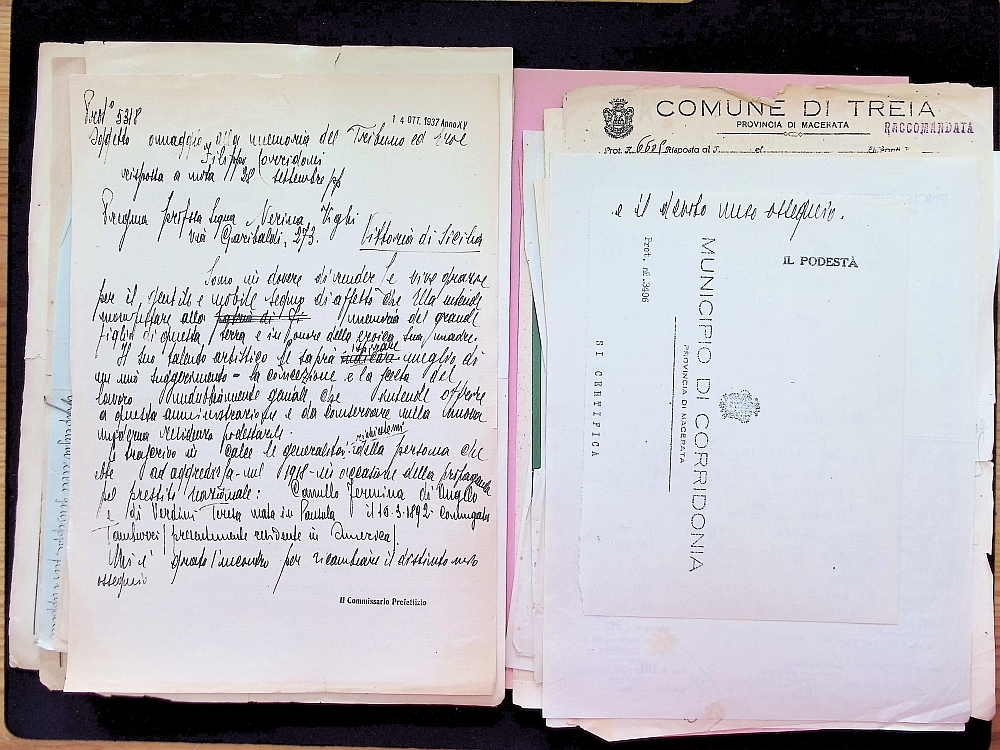 Prot° 5318
14 OTT. 1937 Anno XV
Oggetto omaggio alla memoria del Tribuno ed Eroe
Filippo Corridoni
risposta a nota 28 settembre pp
Verina Vighi
via Garibaldi, 273. Vittoria di Sicilia
Sono in dovere di rendere le vive grazie
per il gentile e nobile segno di affetto che Ella intende
alla memoria del grande
figlio di questa terra e in onore della eroica sua madre.
Il suo talento artistico le saprà ispirare meglio di
un mio suggerimento - la concezione e la scelta del
lavoro indubbiamente geniale, che intende offrire
a questa amministrazione e da conservare nella nuova
moderna residenza podestarile.
Le trascrivo in calce le generalità richiestemi della persona che
ebbe ad aggredirla nel 1918 in occasione della propaganda
pel prestito nazionale: Camillo Fermina di
e di Verdini Teresa nata in Pausula il 10.3.1892 coniugata
Tamburri (presentemente residente in America).
grato l'incontro per ricambiare il distinto mio
ossequio
Il Commissario Prefettizio
COMUNE DI TREIA
PROVINCIA DI MACERATA
RACCOMANDATA
Prot. N. 6605 Risposta al
e il devoto mio ossequio.
IL PODESTÀ
MUNICIPIO DI CORRIDONIA
PROVINCIA DI MACERATA
Prot. nº.3496
SI CERTIFICA